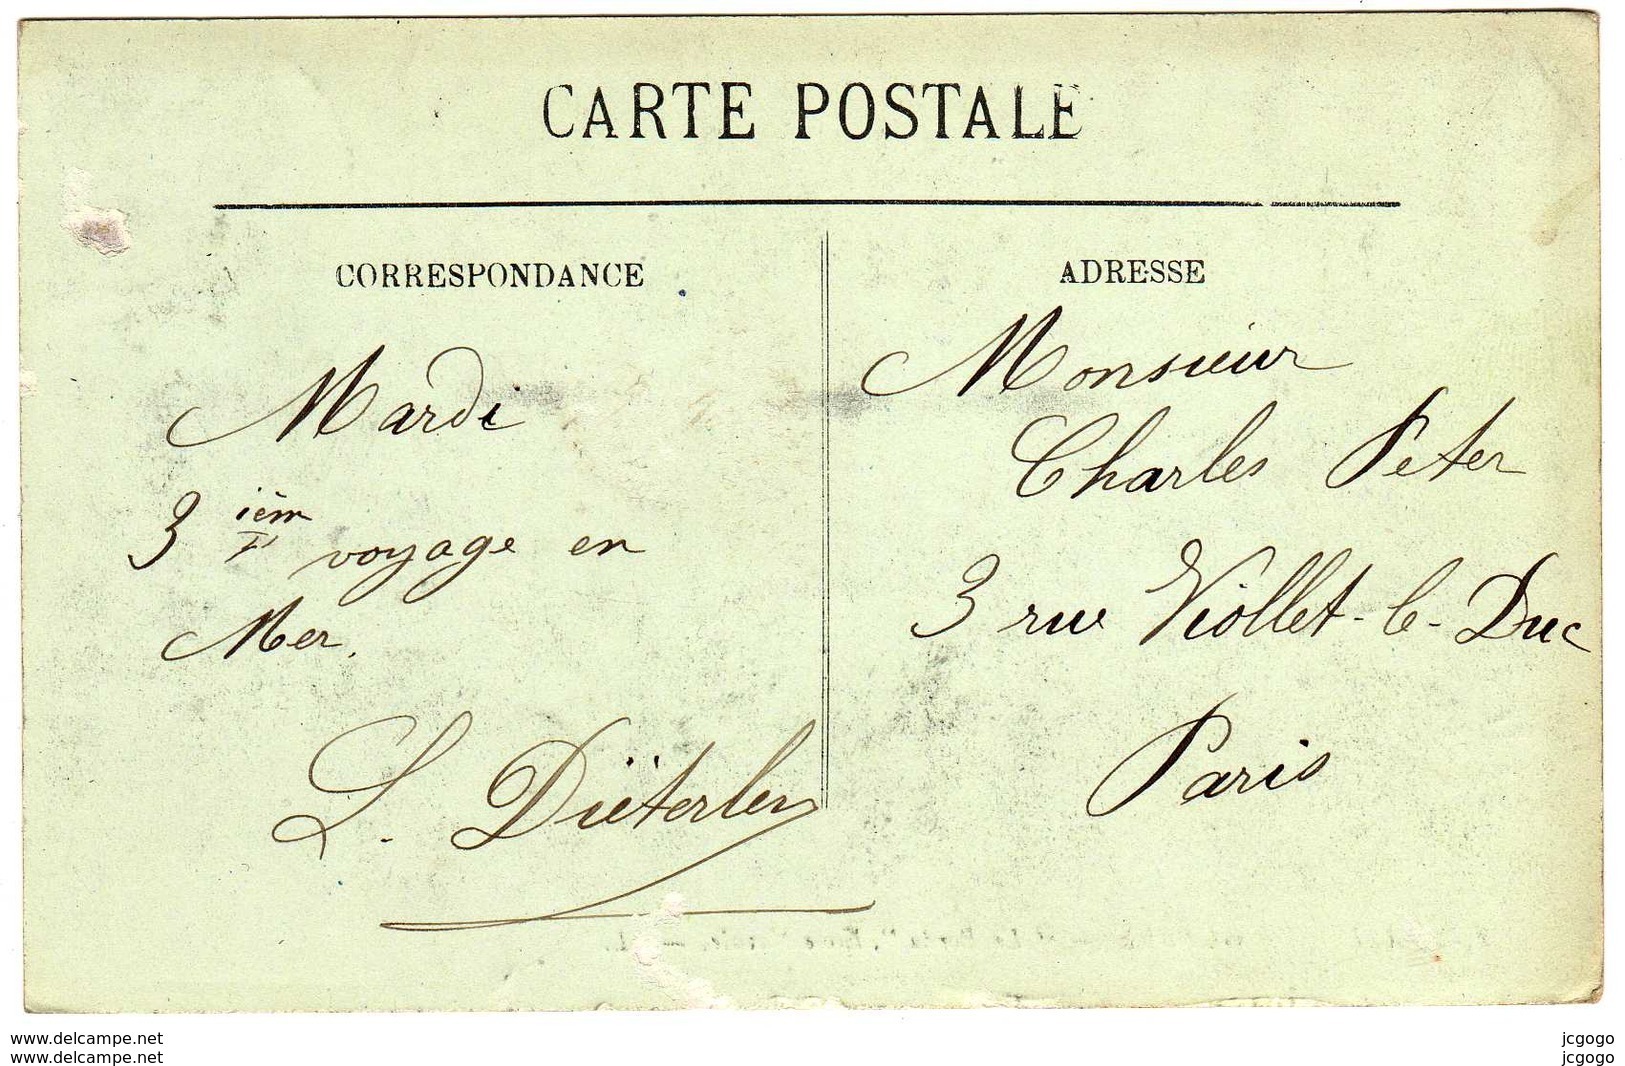 CARTE POSTALE
CORRESPONDANCE
Mardi
3 ièm voyage en
Mer.
L. Dieterlen
ADRESSE
Monsieur
Charles Peter
3 rue Viollet-le-Duc
Paris
www.delcampe.net
www.delcampe.net
jcgogo
jcgogo